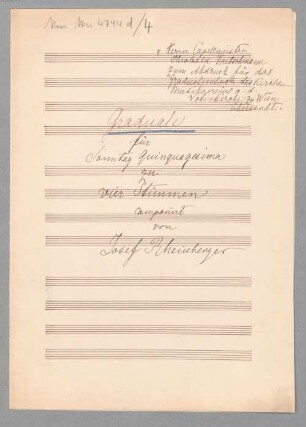 Mus. Mss. 4744 d/4
Herrn Capellmeister
Theobald Kretschmann
zum Abdruck für das
des Kirchen-
Musikvereins a. d.
Votivkirche zu Wien
überlassen.
Graduale
für
Sonntag Quinquagesima
zu
vier Stimmen
componirt
von
Josef Rheinberger